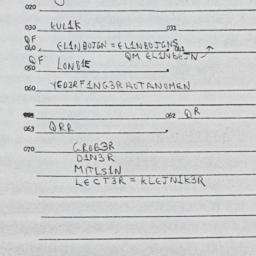 020
030 KUL1K 031
QF
040 EL1NBOJGN = EL1NBOJGNS 041
QM EL1NBEJN
QF
050 LON81E
060 YED3RF1NG3RAOTANOMEN
062 QR
063 QRR
070 GROE3R
D1N3R
M1TLS1N
LECT3R = KLEJN1K3R